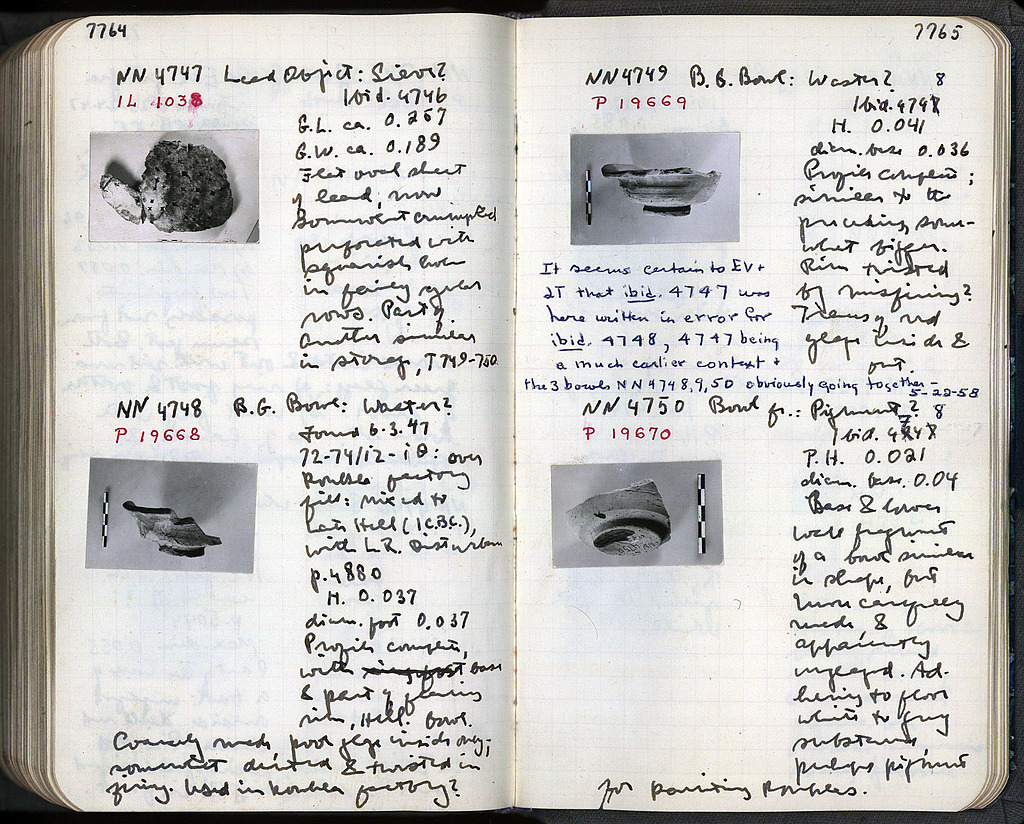 7764
NN 4747 Lead Object: Sieve?
IL 1038
Ibid. 4746
G.L. ca. 0.267
G.W. ca. 0.189
Flat oval sheet
of lead, now
somewhat crumpled
perforated with
squarish holes
in fairly regular
rows. Part of
another similar
in storage, T 749-750
NN 4748 B.G. Bowl: Waster?
P 19668
Found 6.3.47
72-74/12-ΙΘ: over
Rouless factory
fill: mixed to
Late Hell (I C.B.C.),
with L.R. disturban
p. 4880
H. 0.037
diam. foot 0.037
Profile complete,
with base
& part of flaring
rim, Hell. Bowl.
Coarsely made, poor glaze inside only;
somewhat dented & twisted in
firing. Used in factory?
7765
NN 4749 B.G. Bowl: Waster? 8
P 19669
Ibid. 4747
H. 0.041
diam. base 0.036
Profile complete;
similar to the
preceding some-
what bigger.
Rim twisted
by misfiring?
Traces of red
glaze inside &
out.
It seems certain to EV +
DT that ibid. 4747 was
here written in error for
ibid. 4748, 4747 being
a much earlier context +
the 3 bowls NN 4748,9,50 obviously going together-
5-22-58
NN 4750 Bowl fr.: Pigment? 8
P 19670
Ibid. 4747
P.H. 0.021
diam. base. 0.04
Base & lower
wall fragment
of a bowl similar
in shape, but
more carefully
made &
apparently
unglazed. Ad-
hering to floor
white to gray
substance,
perhaps pigment
for painting